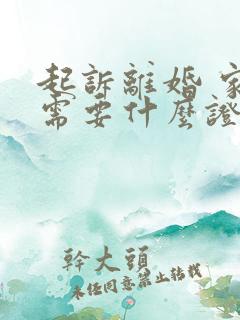 起訴離婚 家
需要什麼證
幹大頭
未任同意禁止转载